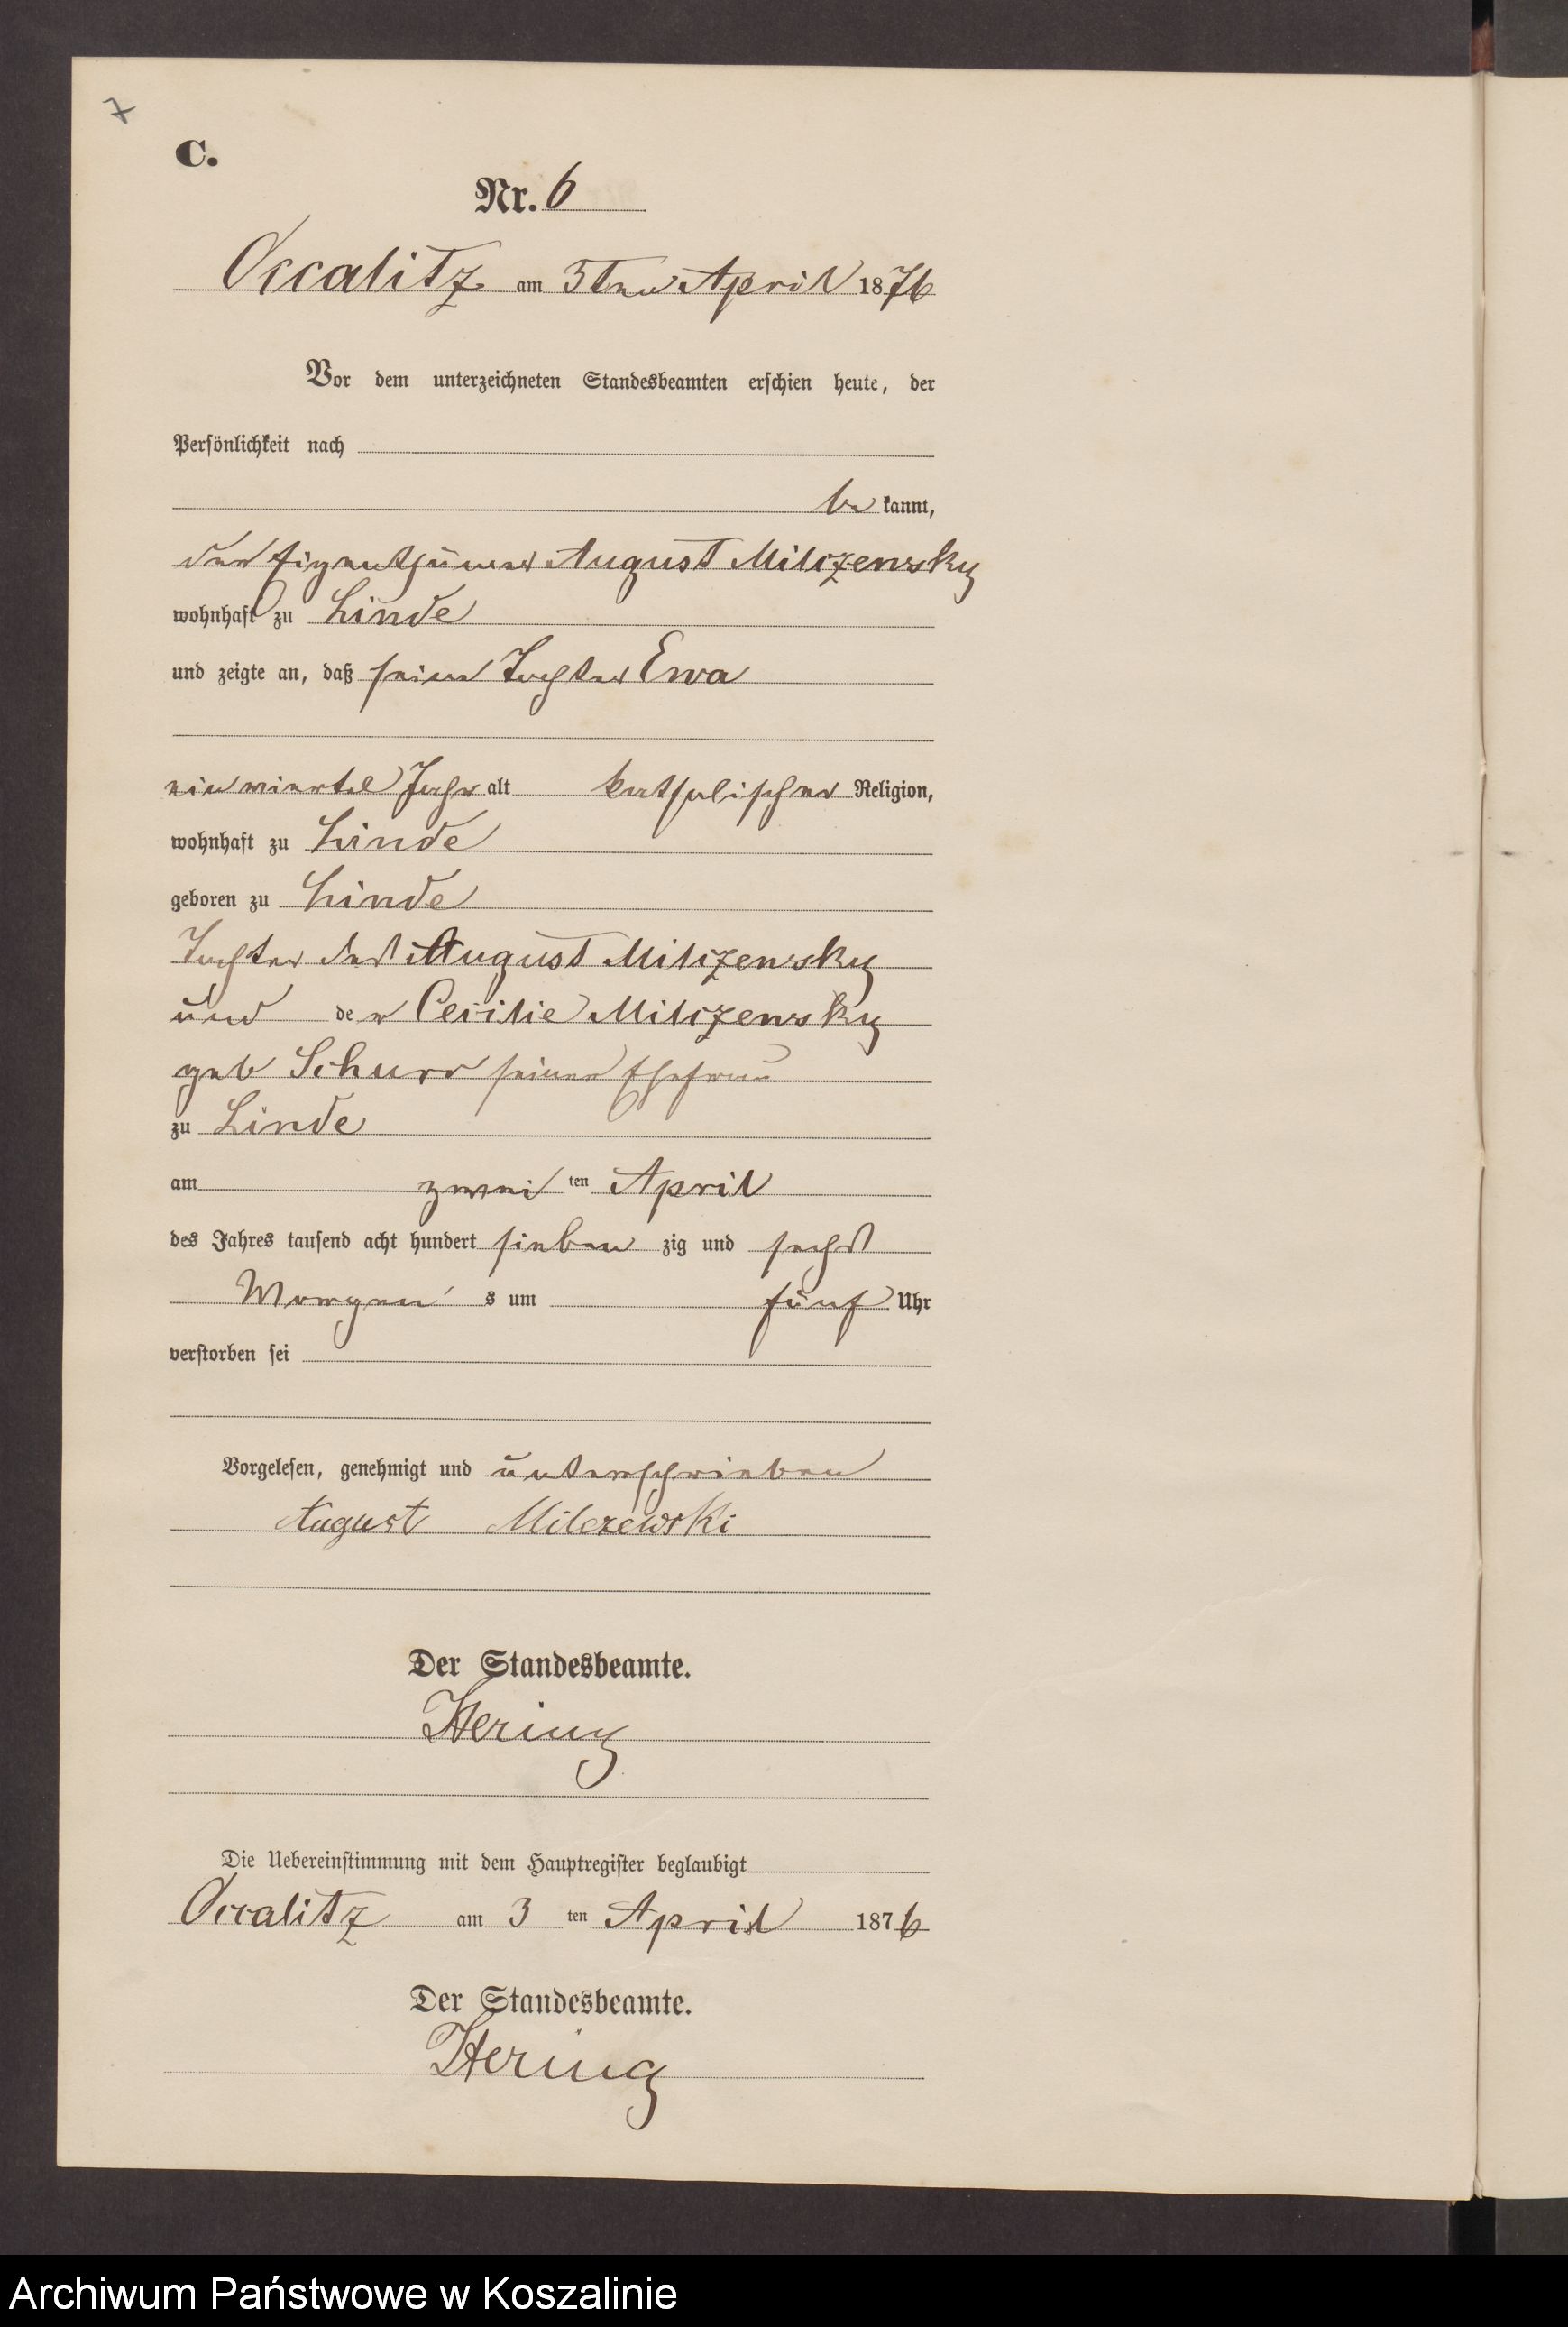 7
C.
Nr. 6
Occalitz am 3ten April 1876
Vor dem unterzeichneten Standesbeamten erschien heute, der
Persönlichkeit nach
be kannt,
der Eigenthümer August Milczewsky
wohnhaft zu Linde
und zeigte an, daß seine Tochter Ewa
ein viertel Jahr alt katholischer Religion,
wohnhaft zu Linde
geboren zu Linde
Tochter des August Milczewsky
und der Cecilie Milczewsky
geb Schurr seiner Ehefrau
zu Linde
am zwei ten April
des Jahres tausend acht hundert sieben zig und sechs
Morgen s um fünf Uhr
verstorben sei
Vorgelesen, genehmigt und unterschrieben
August Milczewski
Der Standesbeamte.
Hering
Die Uebereinstimmung mit dem Hauptregister beglaubigt
Occalitz am 3 ten April 1876
Der Standesbeamte.
Hering
Archiwum Państwowe w Koszalinie